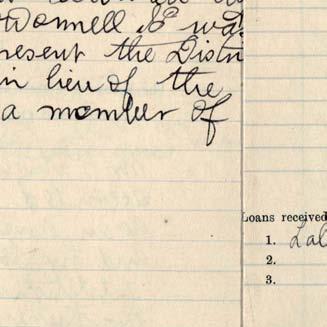 Donnell to was
resent the Distri
in lieu of the
a member of
Loans received
1. Lal
2.
3.